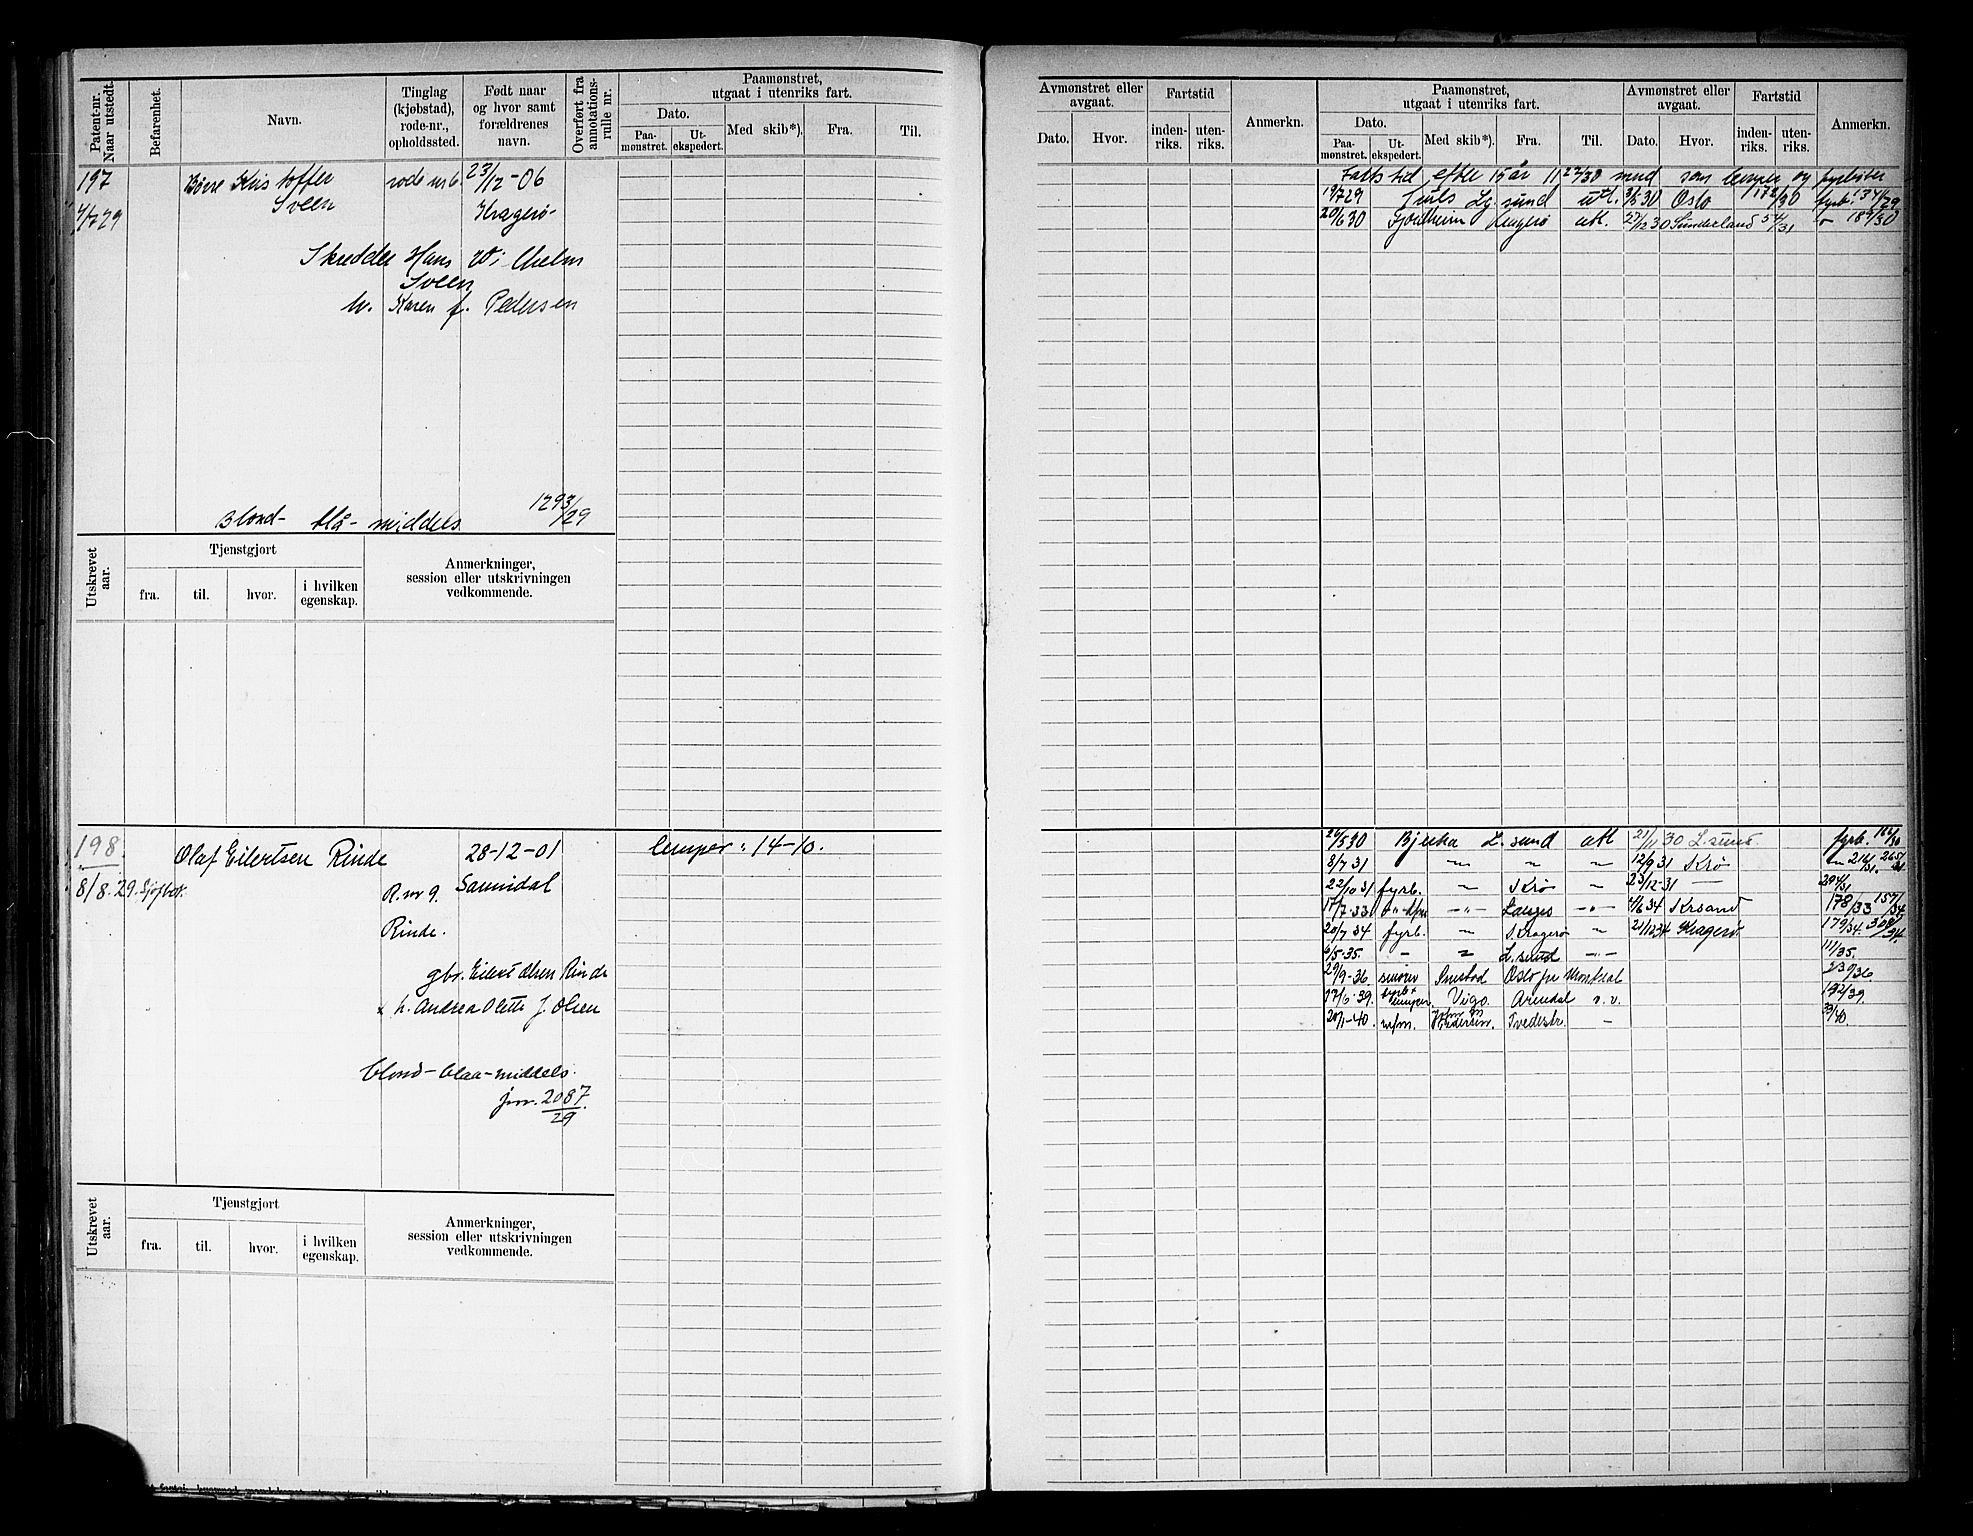 Patent-nr. Naar utstedt.
Befarenhet.
Navn.
Tinglag (kjøbstad), rode-nr., opholdssted.
Født naar og hvor samt forældrenes navn.
Overført fra annotations-rulle nr.
Paamønstret, utgaat i utenriks fart.
Dato.
Paa-mønstret.
Ut-ekspedert.
Med skib*).
Fra.
Til.
197
4/7 29
Børre Kristoffer
Sveen
rode nr 6
23/12-06
Kragerø-
Skredder Hans Vilhelm
Sveen
h. Karen f. Pedersen
Blond- blå- middels
1293/29
Utskrevet aar.
Tjenstgjort
fra.
til.
hvor.
i hvilken egenskap.
Anmerkninger, session eller utskrivningen vedkommende.
198
8/8.29. Sjøfbok.
Olaf Eilertsen Rinde
28-12-01
R.nr 9. Sannidal
Rinde.
gbr. Eilert Olsen Rinde
x h. Andrea Olette f. Olsen
blond-blaa-middels.
jnr. 2087/29
lemper: 14-10.
Utskrevet aar.
Tjenstgjort
fra.
til.
hvor.
i hvilken egenskap.
Anmerkninger, session eller utskrivningen vedkommende.
Avmønstret eller avgaat.
Dato.
Hvor.
Fartstid
inden-riks.
uten-riks.
Anmerkn.
Paamønstret, utgaat i utenriks fart.
Dato.
Paa-mønstret.
Ut-ekspedert.
Med skib*).
Fra.
Til.
Avmønstret eller avgaat.
Dato.
Hvor.
Fartstid
inden-riks.
uten-riks.
Anmerkn.
Farts tid efter 15 år 11 22/30 mnd som lemper og fyrbøter
19/7 29 sund utl. 3/6 30 Oslo fyrb. 134/29
20/6 30 Fjordheim Kragerø utl. 27/12 30 Sunderland 189/30
26/5 30 Bjerka L.sund utl 21/11 30 L.sund fyrb. 182/30
8/7 31 " " " 12/9 31 Krø
22/10 31 fyrb. " Krø " 23/12-31 294/31
17/7-33 -"- -"- 4/6 34 Krsand 178/33 157/34
20/7 34 fyrb. " Kragerø " 21/12 34 Kragerø. 179/34. 308/34.
6/5-35. - " L.sund -"- 111/35.
29/9-36 smører Oslo pr Montreal 239/36
17/6-39. fyrb + lemper. Vigo. Arendal n.v. 192/39.
20/1-40 Pedersen. Tvedestr. - 33/40.